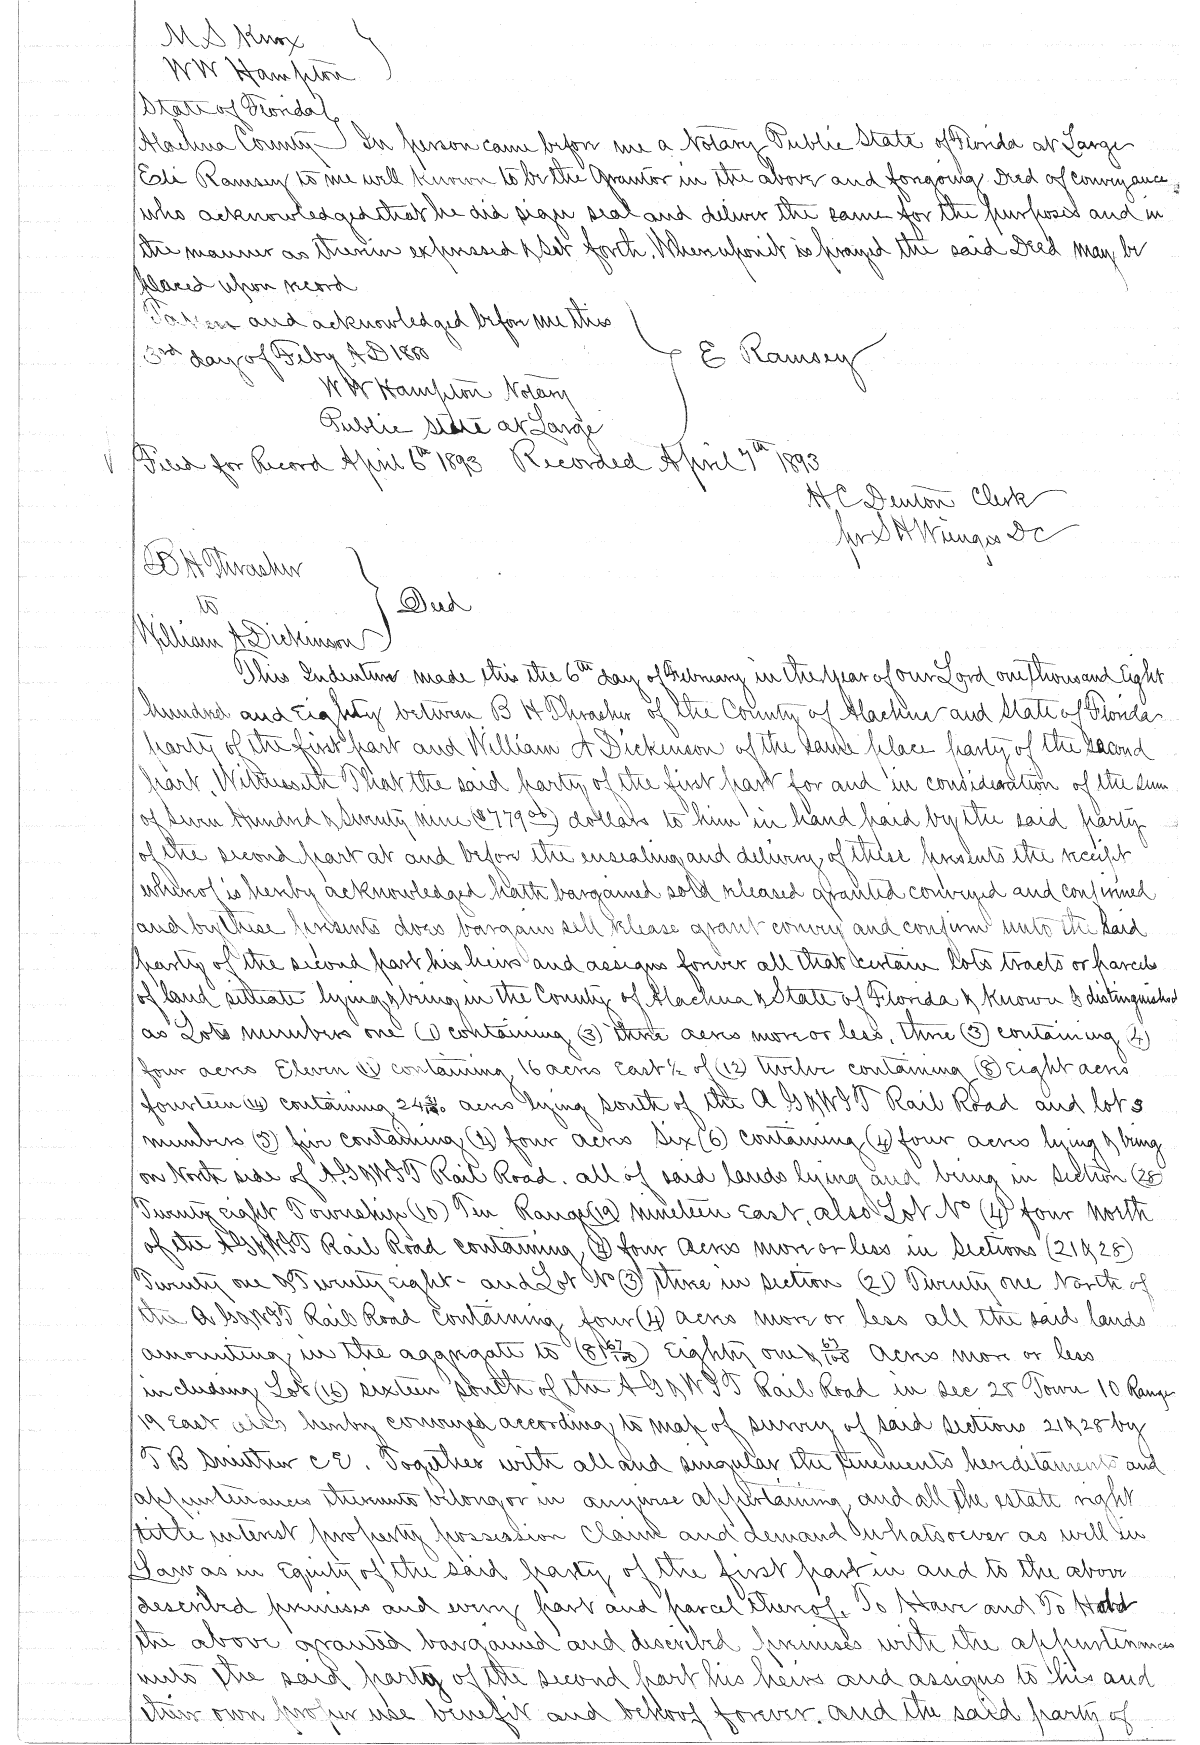 M S Knox
W W Hampton
State of Florida
Alachua County In person came before me a Notary Public State of Florida at Large
Eli Ramsey to me well known to be the Grantor in the above and foregoing Deed of conveyance
who acknowledged that he did sign seal and deliver the same for the purposes and in
the manner as therein expressed & set forth. Whereupon it is prayed the said Deed may be
placed upon record
Taken and acknowledged before me this
3rd day of Feby A D 1880
E Ramsey
W W Hampton Notary
Public State at Large
Filed for Record April 6th 1893 Recorded April 7th 1893
H C Denton Clerk
pr S H Wienges DC
B H Thrasher
to
Deed
William A Dickinson
This Indenture made this the 6th day of February in the year of our Lord one thousand Eight
hundred and Eighty between B H Thrasher of the County of Alachua and State of Florida
party of the first part and William A Dickenson of the same place party of the second
part, Witnesseth That the said party of the first part for and in consideration of the sum
of Seven Hundred & Seventy nine ($779 00) dollars to him in hand paid by the said party
of the second part at and before the ensealing and delivery of these presents the receipt
whereof is hereby acknowledged hath bargained sold released granted conveyed and confirmed
and by these presents does bargain sell release grant convey and confirm unto the said
party of the second part his heirs and assigns forever all that certain lots tracts or parcels
of land situate lying & being in the County of Alachua & State of Florida & known & distinguished
as Lots numbers one (1) containing (3) three acres more or less, three (3) containing (4)
four acres Eleven (11) containing 16 acres East ½ of (12) twelve containing (8) Eight acres
fourteen (14) containing 24 acres lying south of the A G & W I T Rail Road and lots
numbers (5) five containing (4) four acres Six (6) containing (4) four acres lying & being
on North side of A. G & W I T Rail Road. all of said lands lying and being in Section (28
Twenty eight Township (10) Ten Range (19) nineteen East, also Lot No (4) four North
of the A G & W I T Rail Road containing (4) four Acres more or less in Sections (21 & 28)
Twenty one & Twenty Eight - and Lot No (3) three in section (21) Twenty one North of
the A G & W I T Rail Road containing four (4) acres more or less all the said lands
amounting in the aggregate to (81 67/100) Eighty one & 67/100 Acres more or less
including Lot (16) sixteen south of the A G & W I T Rail Road in sec 28 Town 10 Range
19 East hereby conveyed according to map of survey of said sections 21 & 28 by
T B C E. Together with all and singular the tenements hereditaments and
appurtenances thereunto belong or in anywise appertaining and all the estate right
title interest property possession claim and demand whatsoever as well in
Law as in Equity of the said party of the first part in and to the above
described premises and every part and parcel thereof. To Have and To Hold
the above granted bargained and described premises with the appurtenances
unto the said party of the second part his heirs and assigns to his and
their own proper use benefit and behoof forever. and the said party of